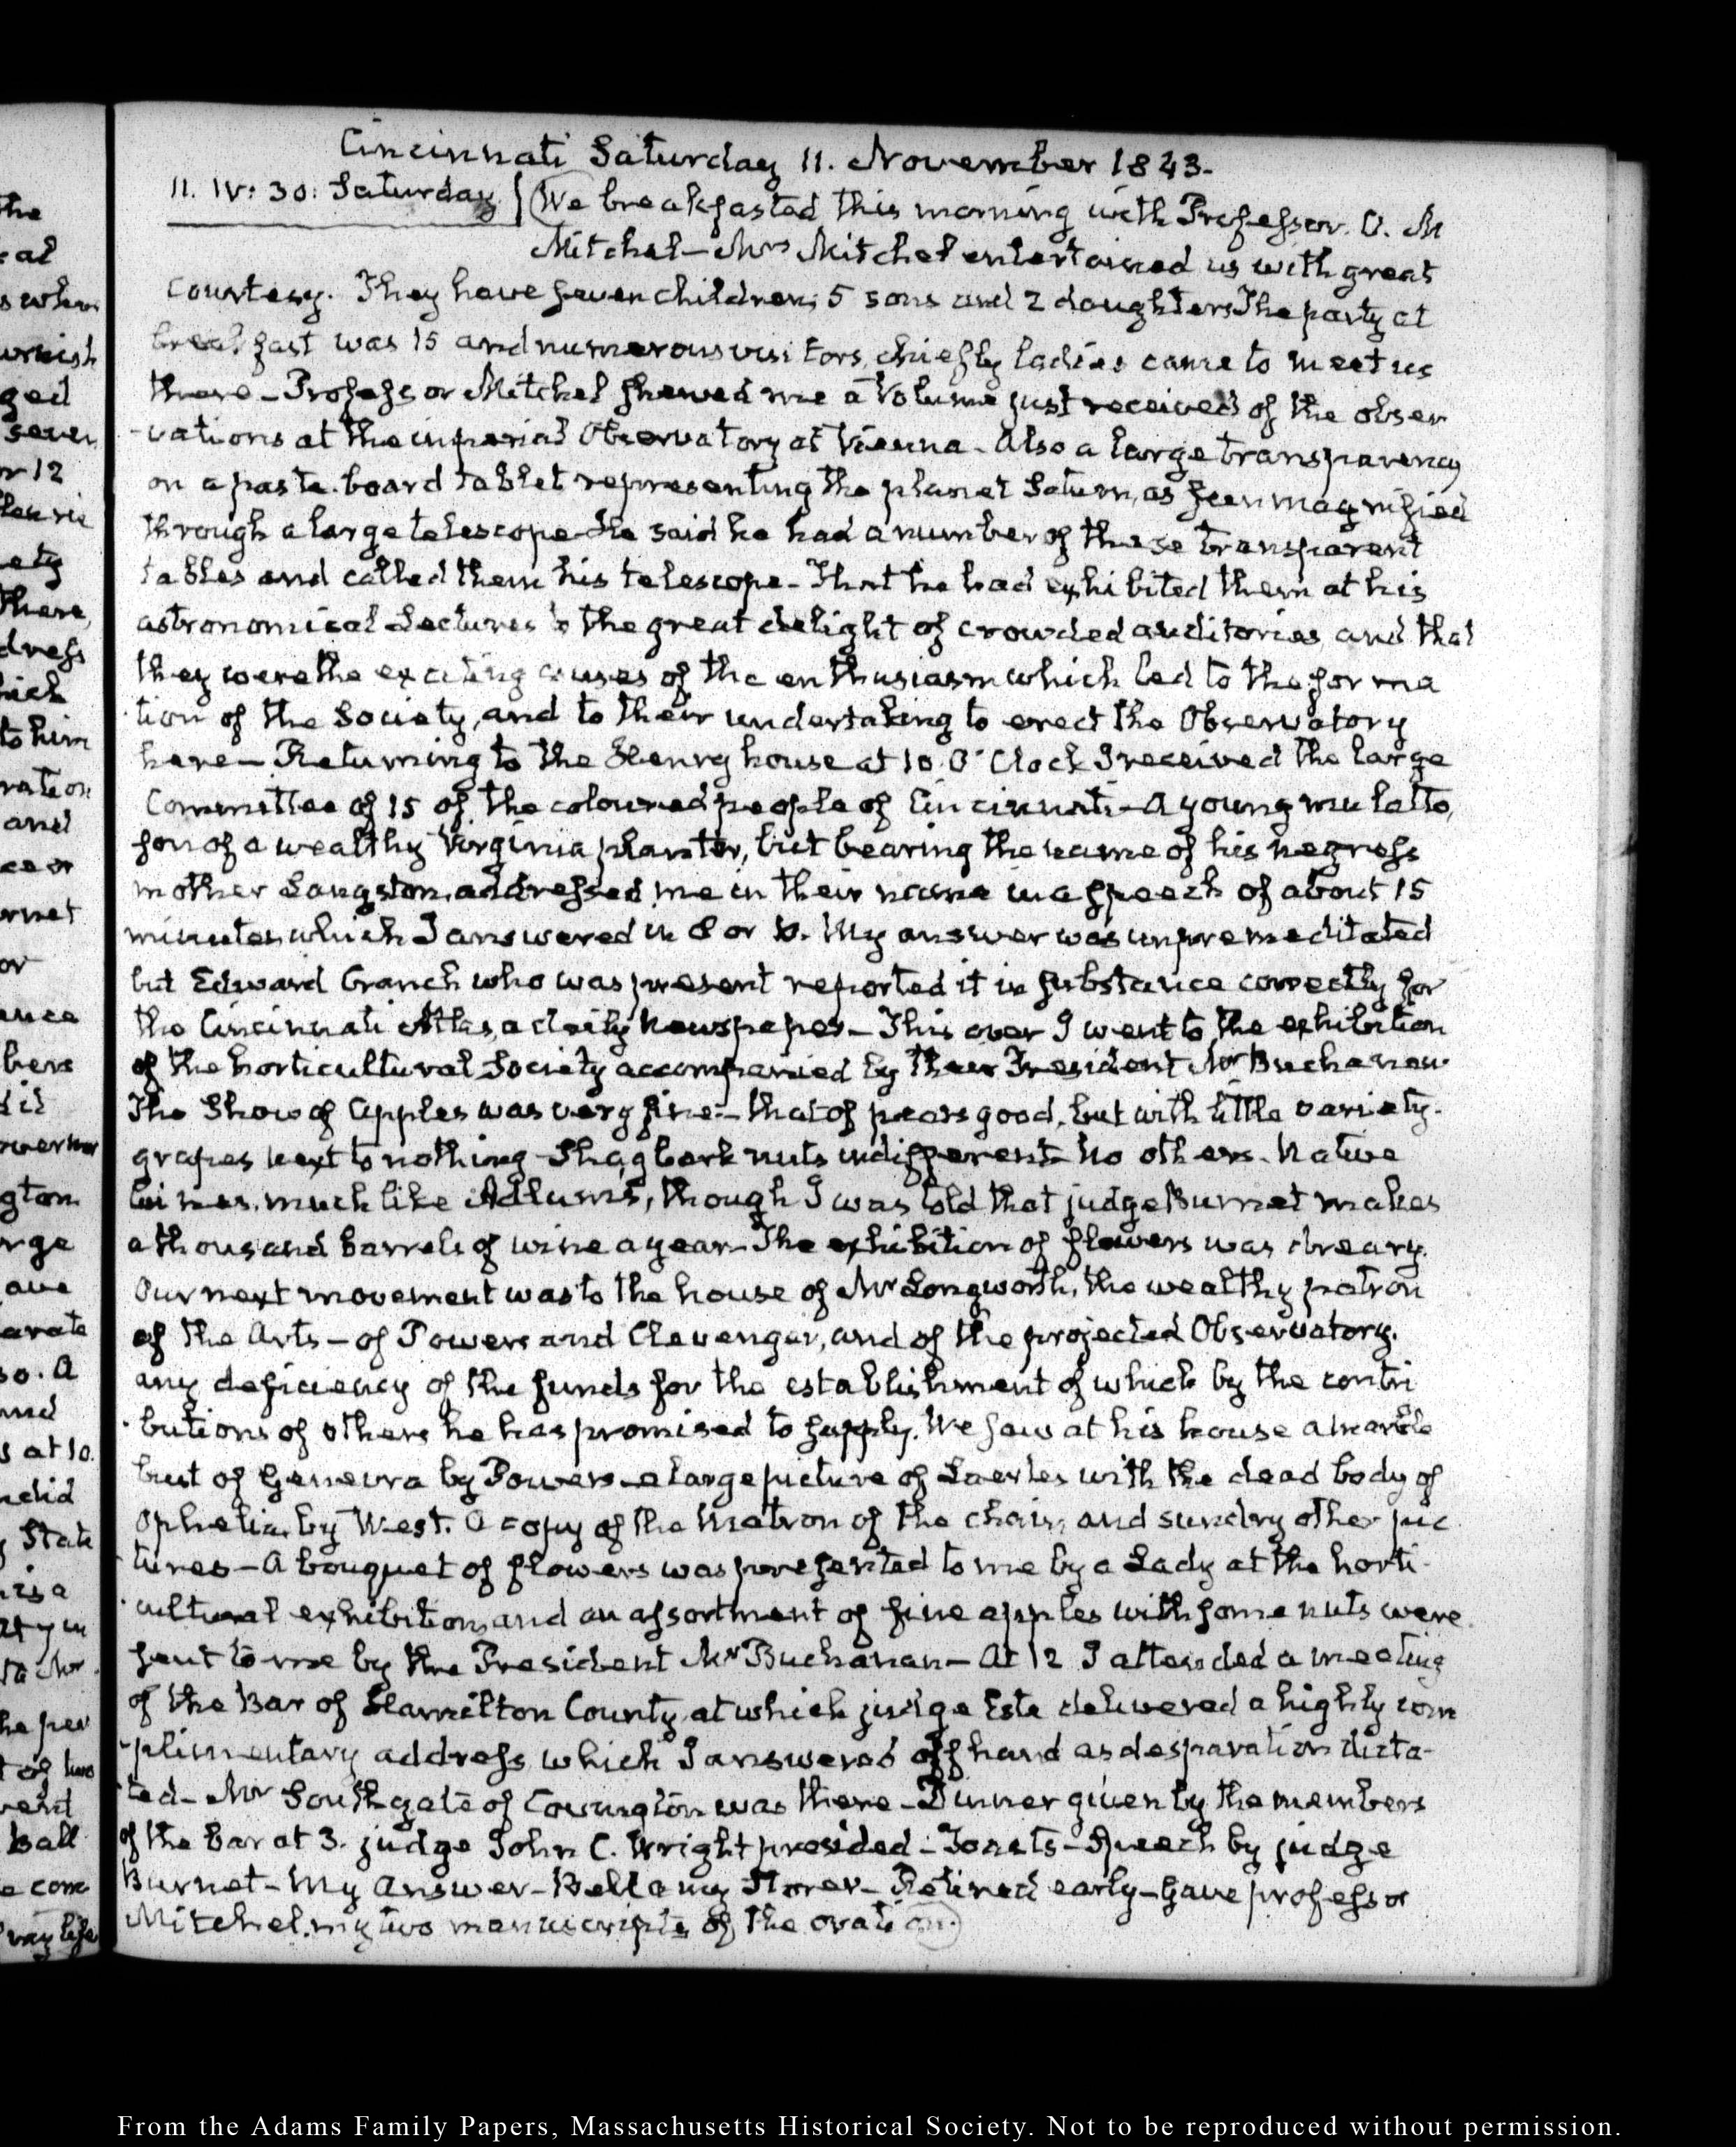 Cincinnati Saturday 11. November 1843.
11. IV: 30: Saturday | We breakfasted this morning with Professor. O. M
Mitchel — Mrs Mitchel entertained us with great
courtesy. They have seven children; 5 sons and 2 daughters The party at
breakfast was 15 and numerous visitors, chiefly ladies came to meet us
there — Professor Mitchel shewed me a Volume just received of the obser
-vations at the imperial Observatory at Vienna - Also a large transparency
on a paste-board tablet representing the planet Saturn, as seen magnified
through a large telescope — He said he had a number of these transparent
tables and called them his telescope - That he had exhibited them at his
astronomical Lectures to the great delight of crowded auditories, and that
they were the exciting causes of the enthusiasm which led to the forma
-tion of the Society, and to their undertaking to erect the Observatory
here — Returning to the Henry house at 10. O'Clock I received the large
Committee of 15 of the coloured people of Cincinnati — A young mulatto,
son of a wealthy Virginia planter, but bearing the name of his negress
mother Langston, addressed me in their name in a speech of about 15
minutes which I answered in 8 or 10. My answer was unpremeditated
but Edward Cranch who was present reported it in substance correctly for
the Cincinnati Atlas, a daily Newspaper — This over I went to the exhibition
of the horticultural Society accompanied by their President Mr Buchanan
The Show of apples was very fine - that of pears good, but with little variety.
grapes next to nothing - Shagbark nuts indifferent - No others. Native
wines, much like Adlums, though I was told that judge Burnet makes
a thousand barrels of wine a year - The exhibition of flowers was dreary.
Our next movement was to the house of Mr Longworth, the wealthy patron
of the Arts — of Powers and Clevenger, and of the projected Observatory.
any deficiency of the funds for the establishment of which by the contri
-butions of others he has promised to supply. We saw at his house a marble
bust of Genevra by Powers — a large picture of Laertes with the dead body of
Ophelia, by West. A copy of the Madonna of the chair, and sundry other pic
-tures — A bouquet of flowers was presented to me by a Lady at the horti-
-cultural exhibition, and an assortment of fine apples with some nuts were
sent to me by the President Mr Buchanan — At 12 I attended a meeting
of the Bar of Hamilton County, at which judge Este delivered a highly com
-plimentary address, which I answered off hand as desparation dicta-
-ted - Mr Southgate of Covington was there — Dinner given by the members
of the Bar at 3. judge John C. Wright presided — Toasts — Speech by judge
Burnet — My answer — Bellamy Storer — Retired early — Gave professor
Mitchel, my two manuscripts of the oration.
the
s when
ged
seven
or 12
ety
there,
dress
to him
and
or
bers
gton
rge
so. A
s at 10.
State
is a
Ball
From the Adams Family Papers, Massachusetts Historical Society. Not to be reproduced without permission.